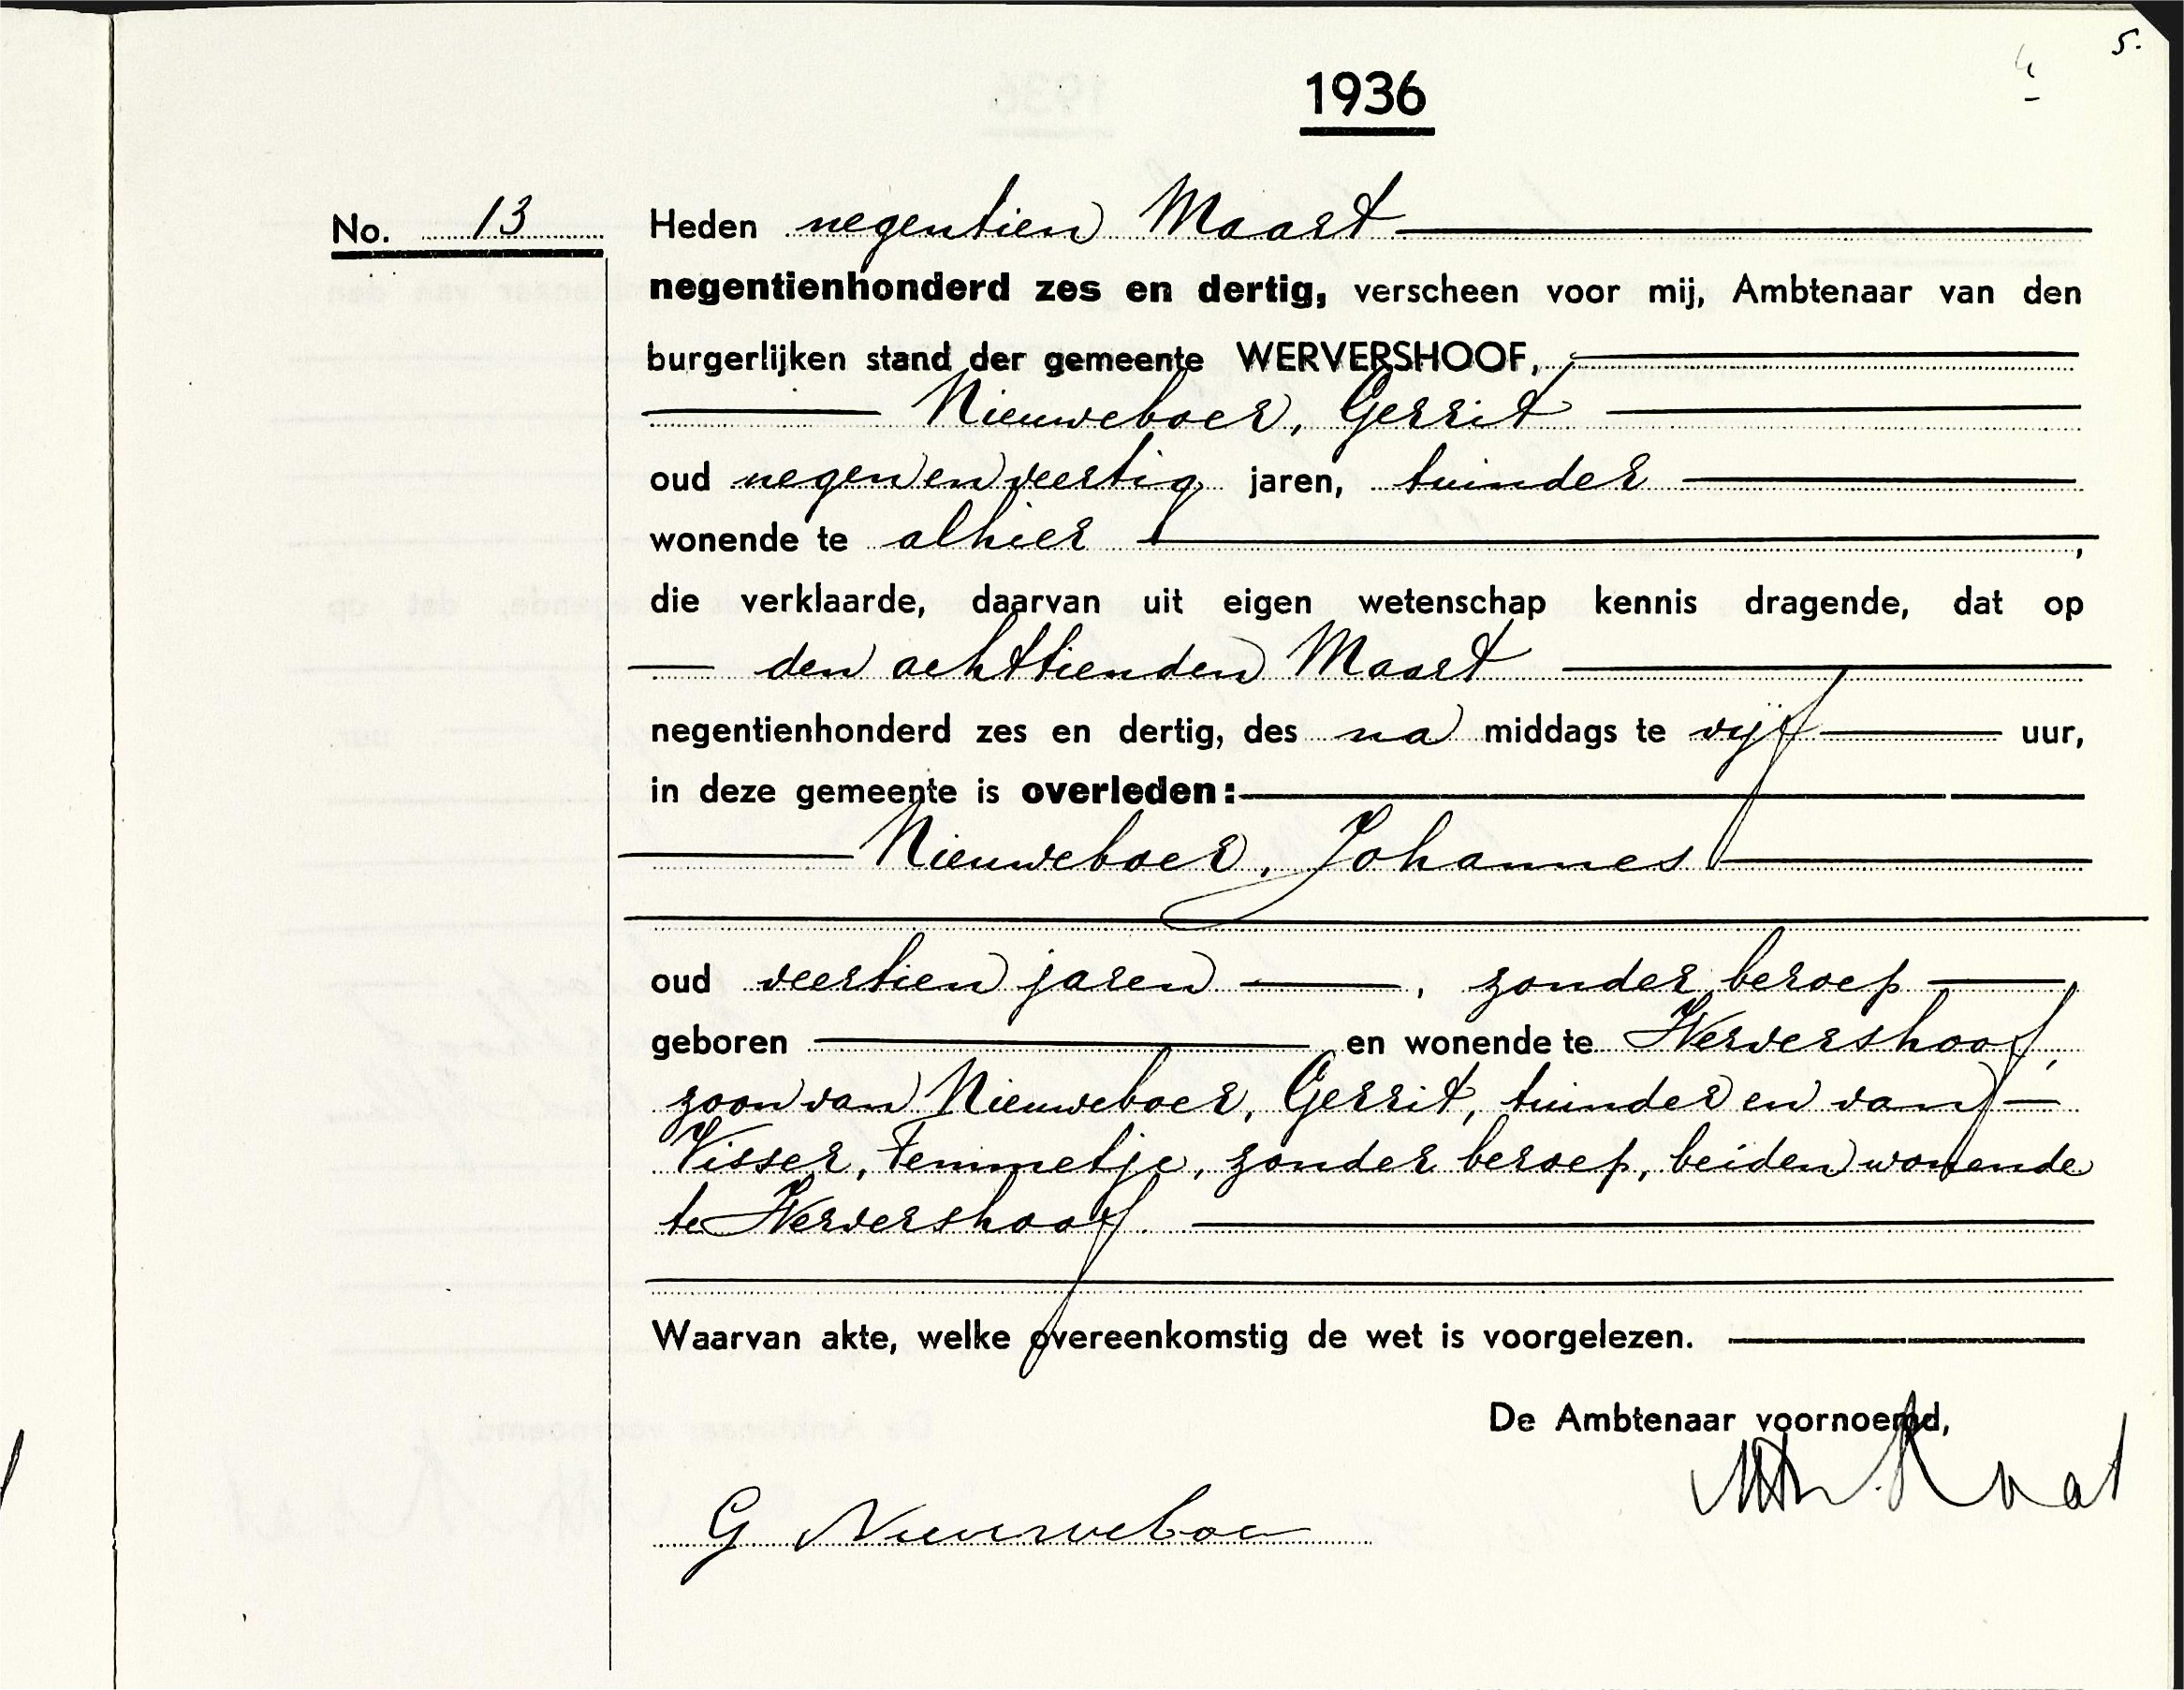 5.
1936
No. 13
Heden negentien Maart
negentienhonderd zes en dertig, verscheen voor mij, Ambtenaar van den
burgerlijken stand der gemeente WERVERSHOOF,
Nieuweboer, Gerrit
oud negenenveertig jaren, tuinder
wonende te alhier ,
die verklaarde, daarvan uit eigen wetenschap kennis dragende, dat op
den achttienden Maart
negentienhonderd zes en dertig, des na middags te vijf uur,
in deze gemeente is overleden:
Nieuweboer, Johannes
oud veertien jaren , zonder beroep
geboren en wonende te Wervershoof,
zoon van Nieuweboer, Gerrit, tuinder en van
Visser, Temmetje, zonder beroep, beiden wonende
te Wervershoof.
Waarvan akte, welke overeenkomstig de wet is voorgelezen.
De Ambtenaar voornoemd,
G Nieuweboer